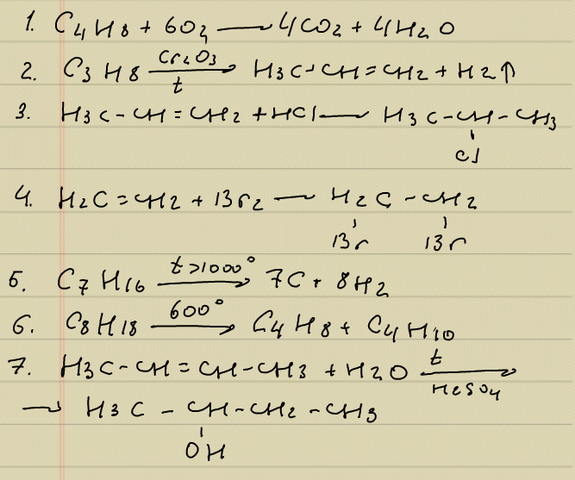 1. C4H8 + 6O2 → 4CO2 + 4H2O
2. C3H8 Cr2O3 t → H3C-CH=CH2 + H2↑
3. H3C-CH=CH2 + HCl → H3C-CH-CH3
Cl
4. H2C=CH2 + Br2 → H2C-CH2
Br Br
5. C7H16 t>1000° → 7C + 8H2
6. C8H18 600° → C4H8 + C4H10
7. H3C-CH=CH-CH3 + H2O t HgSO4 →
→ H3C-CH-CH2-CH3
OH